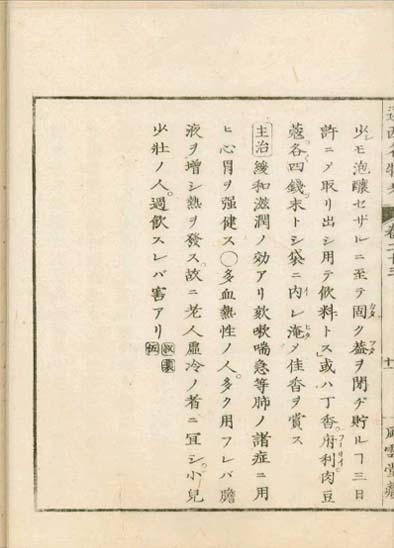 遠西名物考 卷二十三 十一 風雲堂藏
少モ泡釀セザルニ至テ固ク蓋ヲ閉ヂ貯ルヿ三日
許ニメ取リ出シ用テ飲料トス」或ハ丁香。府利肉豆
蔲。各四錢。末トシ袋ニ内レ淹メ佳香ヲ賞ス
主治 緩和滋潤ノ効アリ欬嗽喘急等肺ノ諸症ニ用
ヒ心胃ヲ强健ス〇多血熱性ノ人。多ク用フレバ膽
液ヲ增シ熱ヲ發ス。故ニ老人虛冷ノ者ニ宜シ。小兒
少壯ノ人。過飲スレバ害アリ